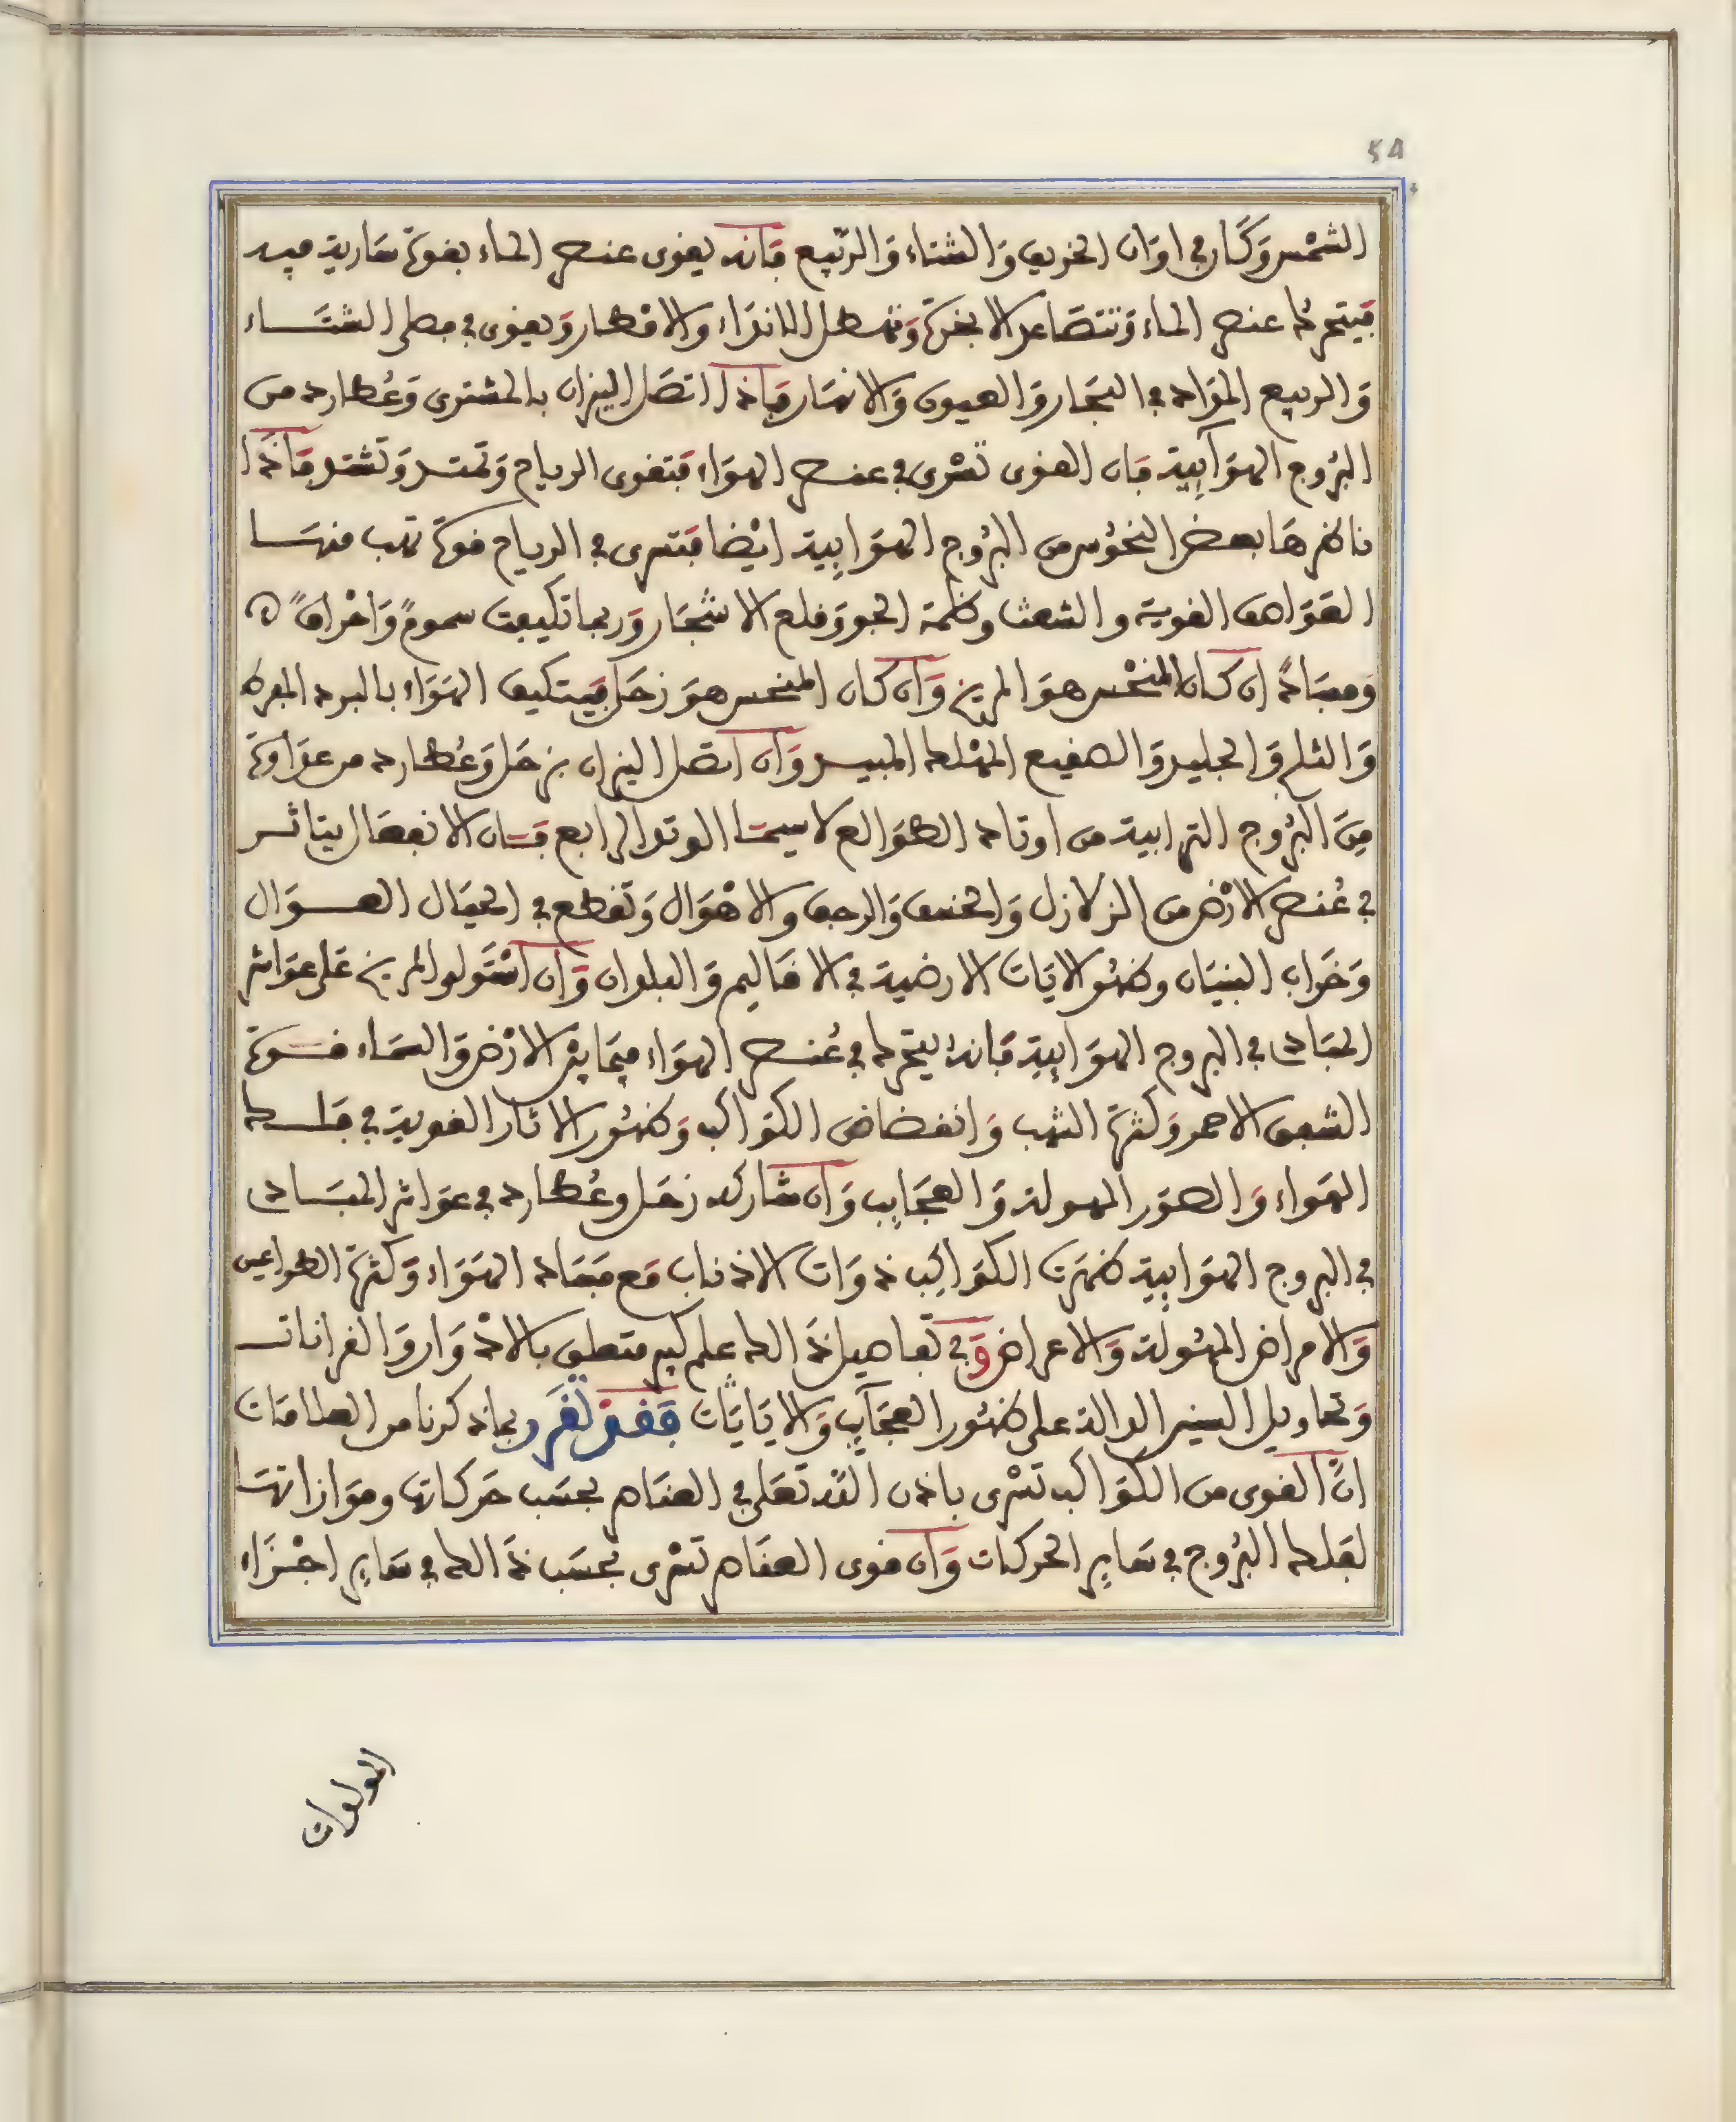 54
الشمس وكان في اوان الخريف والشتاء والربيع فانه يقوى عنصر الماء بقوة سارية فيه
فيتحرك عنصر الماء وتتصاعد الابخرة وتهطل الانداء والامطار ويقوى في فصلي الشتاء
والربيع المواد في البحار والعيون والانهار فاذا اتصل النيران بالمشترى وعطارد من
البروج الهوآيية فان القوى تسرى في عنصر الهواء فتقوى الرياح وتمتد وتشتد فاذا
ناظرها بعض النحوس من البروج الهوايية ايضا فتسرى في الرياح قوة تهب منها
العواصف القوية والشعث وظلمة الجو وقلع الاشجار وربما تكيفت سموم واحراق
وفساد ان كان المنحس هو المريخ وان كان المنحس هو زحل فيتكيف الهواء بالبرد المفرط
والثلج والجليد والصقيع المهلك المبيد وان اتصل النيران بزحل وعطارد من عداوة
من البروج الترابية من اوتاد الطوالع لا سيما الوتد الرابع فان الانفعال يتاثر
في عنصر الارض من الزلازل والخسف والرجف والاهوال وتقطع في الجبال العوال
وخراب البنيان وظهور الايات الارضية في الاقاليم والبلدان وان استولى المريخ على عواشر
المبادى في البروج الهوايية فانه يتحرك في عنصر الهواء فيما بين الارض والسماء قوة
الشفق الاحمر وكثرة الشهب وانقضاض الكواكب وظهور الاثار القوية في فلك
الهواء والصور المهولة والعجايب وان شاركه زحل وعطارد في عواشر المبادى
في البروج الهوايية ظهرت الكواكب ذوات الاذناب مع فساد الهواء وكثرة الطواعين
والامراض المهولة والاعراض وفي تفاصيل ذالك علم كبير متعلق بالادوار والقرانات
وتحاويل السنين الدالة على ظهور العجايب والايايات فقد تقرر بما ذكرنا من العلامات
ان القوى من الكواكب تسرى باذن الله تعلى في العناصر بحسب حركاتها وموازاتها
لفلك البروج في ساير الحركات وان قوى العناصر تسرى بحسب ذالك في ساير اجزاء
المولدات